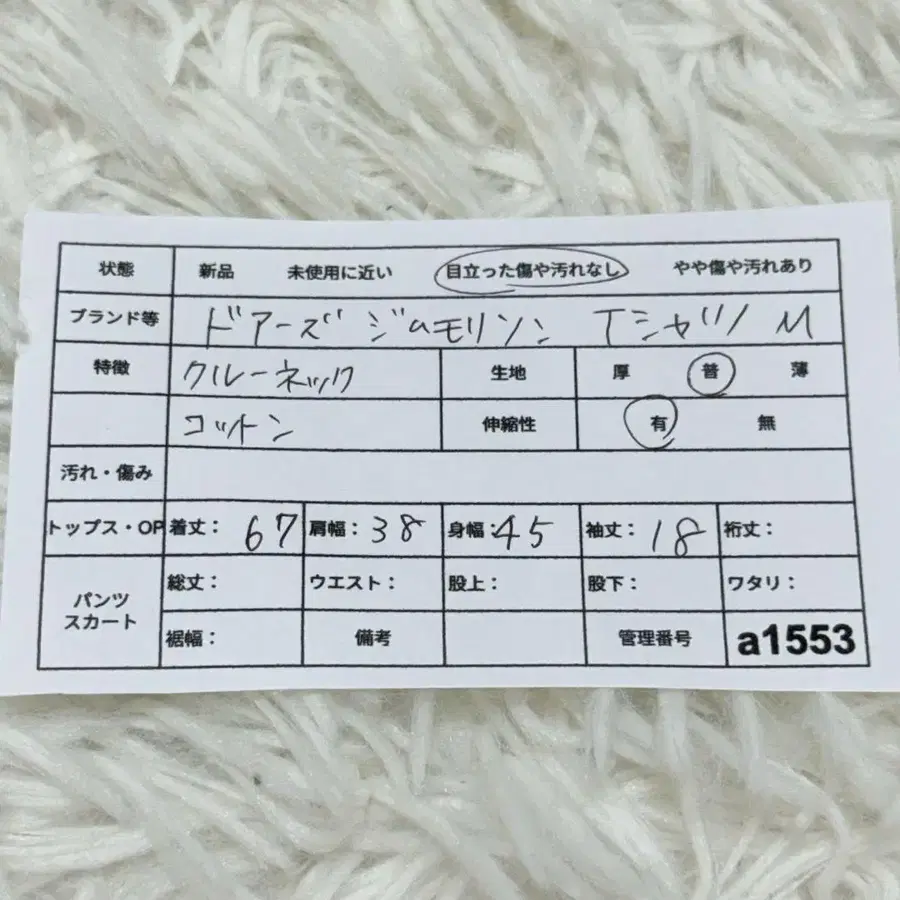 状態 新品 未使用に近い 目立った傷や汚れなし やや傷や汚れあり
ブランド等 ドアーズ ジムモリソン Tシャツ M
特徴 クルーネック 生地 厚 普 薄
コットン 伸縮性 有 無
汚れ・傷み
トップス・OP 着丈: 67 肩幅: 38 身幅: 45 袖丈: 18 裄丈:
パンツ スカート 総丈: ウエスト: 股上: 股下: ワタリ:
裾幅: 備考 管理番号 a1553